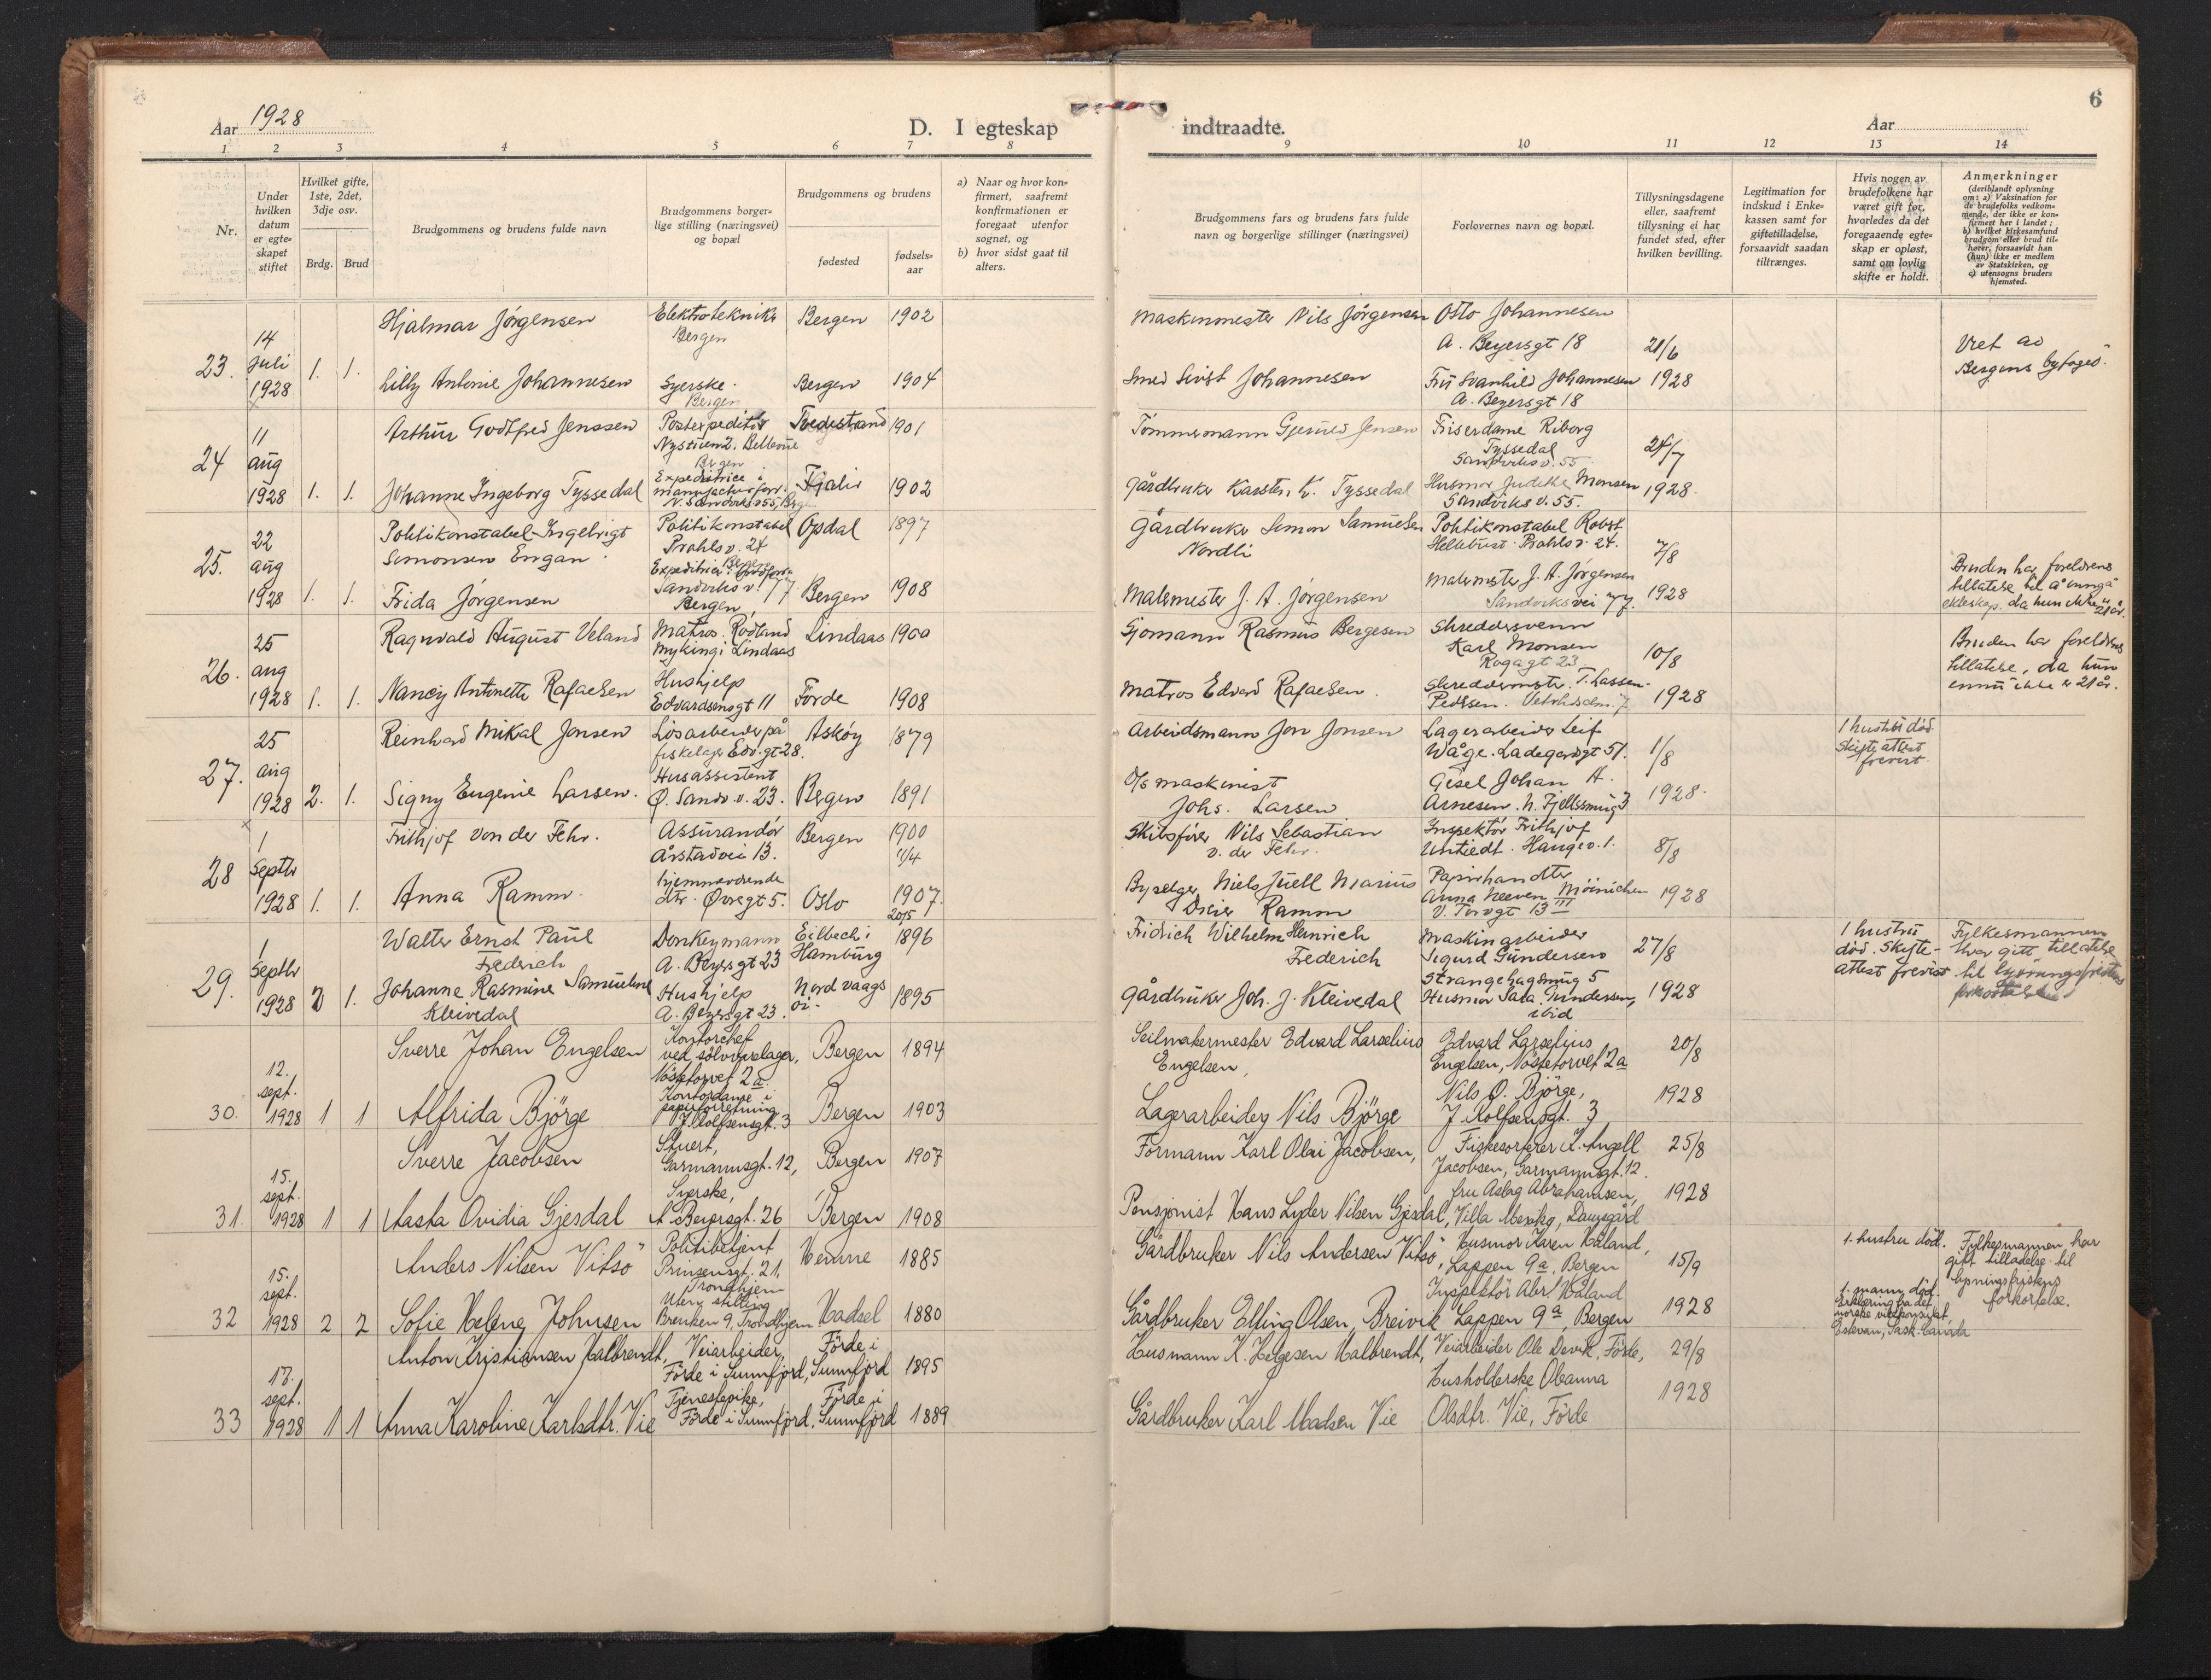 Aar 1928
D. I egteskap
indtraadte.
Aar
6
1 2 3 4 5 6 7 8 9 10 11 12 13 14
Nr.
Under hvilken datum er egte-skapet stiftet
Hvilket gifte, 1ste, 2det, 3dje osv.
Brdg. Brud
Brudgommens og brudens fulde navn
Brudgommens borger-lige stilling (næringsvei) og bopæl
Brudgommens og brudens
fødested
fødsels-aar
a) Naar og hvor kon-firmert, saafremt konfirmationen er foregaat utenfor sognet, og
b) hvor sidst gaat til alters.
Brudgommens fars og brudens fars fulde navn og borgerlige stillinger (næringsvei)
Forlovernes navn og bopæl.
Tillysningsdagene eller, saafremt tillysning ei har fundet sted, efter hvilken bevilling.
Legitimation for indskud i Enke-kassen samt for giftetilladelse, forsaavidt saadan tiltrænges.
Hvis nogen av brudefolkene har været gift før, hvorledes da det foregaaende egte-skap er opløst, samt om lovlig skifte er holdt.
Anmerkninger
(deriblandt oplysning om: a) Vaksination for de brudefolks vedkom-mende, der ikke er kon-firmert her i landet; b) hvilket kirkesamfund brudgom eller brud til-hører, forsaavidt han (hun) ikke er medlem av Statskirken, og c) utensogns bruders hjemsted.
23. 14 Juli 1928 1. 1.
Hjalmar Jörgensen Elektrotekniker Bergen Bergen 1902
Maskinmester Nils Jörgensen Otto Johannesen A. Beyersgt 18 21/6
Lilly Antonie Johannesen Syerske. Bergen Bergen 1904
Smed Sivert Johannesen Fru Svanhild Johannesen A. Beyersgt 18 1928
Viet av Bergens byfoged.
24 11 aug 1928 1. 1.
Arthur Godtfred Jenssen Postexpeditör Nystuen 2. Bellevue Bergen Tvedestrand 1901
Tömmermann Jensen Friserdame Riborg Tyssedal Sandviksv. 55 24/7
Johanne Ingeborg Tyssedal Expeditrice i manufacturforr. N. Sandviksv 55, Bergen Fjaler 1902
Gårdbruker Karsten K. Tyssedal Husmor Judithe Monsen Sandviksv. 55. 1928.
25. 22 aug 1928 1. 1.
Politikonstabel Ingebrigt Simonsen Engan Politikonstabel Prahlsv. 24 Bergen Opdal 1897
Gårdbruker Simon Samuelsen Nordli Politikonstabel Robert Hellebust Prahlsv. 24. 7/8
Frida Jörgensen Sandviksv. 77 Bergen Bergen 1908
Malermester J. A. Jörgensen Malermester J. A. Jörgensen Sandviksvei 77. 1928
Bruden har foreldrens tillatelse til å inngå ekteskap, da hun ikke er 21 år.
26. 25 aug 1928 1. 1.
Ragnvald August Veland Matros. Rödland Mykingi Lindaas Lindaas 1900
Sjömann Rasmus Bergesen Skreddersvenn Karl Monsen 10/8
Nancy Antonette Rafaelsen Hushjelp Edvardsensgt 11 Förde 1908
Matros Edvard Rafaelsen. Skreddermester T. Lassen-Pedersen. 1928
Bruden har foreldrens tillatelse, da hun ennu ikke er 21 år.
27. 25 aug 1928 2. 1.
Reinhard Mikal Jensen Lösarbeider på fiskelager Edv.gt 28. Asköy 1879
Arbeidsmann Jon Jonsen Lagerarbeider Leif Wåge. Ladegårdsgt 51. 1/8
1 hustru död. Skifteattest forevist.
Signy Eugenie Larsen. Husassistent Ø. Sandv.v. 23. Bergen 1891
Maskinist Johs. Larsen Johan A. Arnesen. N. Fjellsmug 3 1928.
28 1 Septbr 1928 1. 1.
Frithjof von der Fehr. Assurandör Årstadvei 13. Bergen 1900 7/4
Skibsförer Nils Sebastian v. der Fehr. Inspektör Frithjof Untiedt. Haugev. 1. 8/8
Anna Ramm. hjemmeværende dtr. Øvregt 5. Oslo 1907. 20/5
Byselger Niels Juell Marius Ramm Papirhandler V. Torvgt 13 III 1928
29. 1 Septbr 1928 2 1.
Walter Ernst Paul Frederich Donkeymann A. Beyersgt 23 Eilbech i Hamburg 1896
Fridrich Wilhelm Heinrich Frederich Maskinarbeider Sigurd Gundersen Strangehagsmug 5 27/8
1 hustru död. Skifte-attest forevist
Fylkesmannen har gitt tillatelse til lysningsfristens forkortelse.
Johanne Rasmine Samueline Kleivedal Hushjelp A. Beyersgt 23. Nord vaagsöi. 1895
Gårdbruker Joh. J. Kleivedal Husmor Sara Gundersen, ibid 1928
30. 12. sept. 1928 1 1
Sverre Johan Engelsen Kontorchef ved sölvvarelager, Nöstetorvet 2a Bergen 1894
Seilmakermester Edvard Larselius Engelsen, Edvard Larselius Engelsen, Nöstetorvet 2a 20/8
Alfrida Björge Kontordame i papirforretning J. Rolfsensgt. 3 Bergen 1903
Lagerarbeider Nils Björge Nils O. Björge, J. Rolfsensgt. 3 1928
31. 15. sept. 1928 1 1
Sverre Jacobsen Stuert, Garmannsgt. 12, Bergen 1907
Formann Karl Olai Jacobsen, Fiskesorterer K. Angell Jacobsen, Garmannsgt. 12. 25/8
Aasta Ovidia Gjesdal Syerske, A Beyersgt. 26 Bergen 1908
Pensjonist Hans Lyder Nilsen Gjesdal, fru Aslag Abrahamsen, Villa Mexiko, Damsgård 1928
32 15. sept. 1928 2 2
Anders Nilsen Vitsö Politibetjent Prinsensgt. 21, Trondhjem Hemne 1885
Gårdbruker Nils Andersen Vitsö, Husmor Karen Håland, Lappen 9a, Bergen 15/9
1. hustru död. Fylkesmannen har gitt tilladelse til lysningsfristens forkortelse.
Sofie Helene Johnsen Uten stilling Trondhjem Hadsel 1880
Gårdbruker Elling Olsen Breivik Inspektör Abr. Håland Lappen 9a, Bergen 1928
1. mann död. Erklæring fra det norske visekonsulat, Estevan, Sask. Canada
33 17. sept. 1928 1 1
Anton Kristiansen Halbrendt, Veiarbeider, Förde i Sunnfjord, Förde i Sunnfjord 1895
Husmann K. Helgesen Halbrendt, Veiarbeider Ole Devik, Förde, 29/8
Anna Karoline Karlsdtr. Vie Tjenestepike, Förde i Sunnfjord, Förde i Sunnfjord 1889
Gårdbruker Karl Madsen Vie Husholderske Oleanna Olsdtr. Vie, Förde 1928